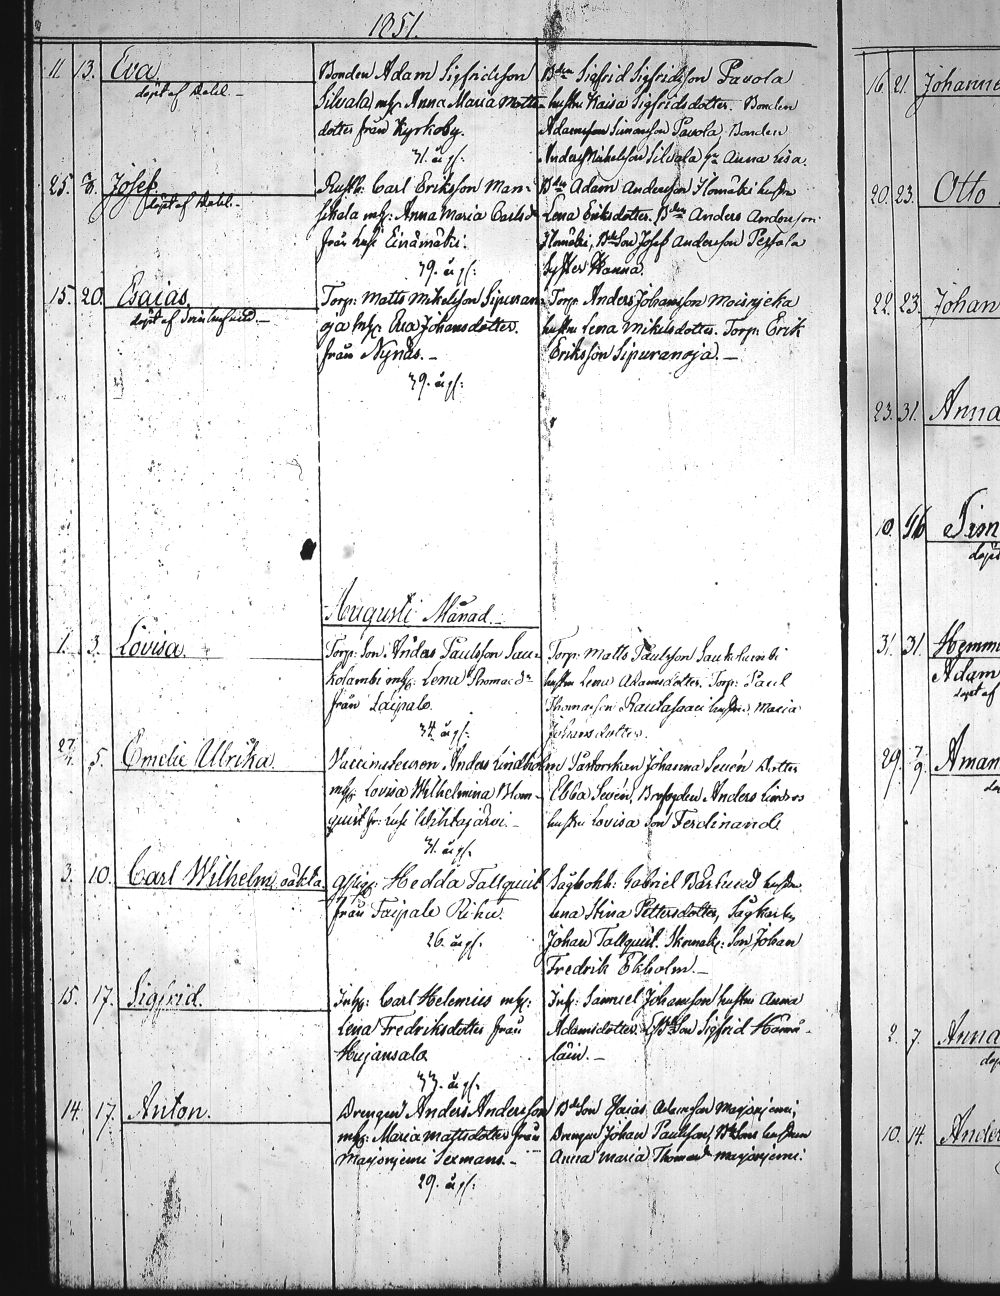 1851.
11. 13. Eva.
döpt af Dahl.
Bonden Adam Sigfridsson
Silvala, mh: Anna Maria Matts
dotter från Kyrkoby.
31. år gl:
Bdn Sigfrid Sigfridsson Pavola
hustru Kaisa Sigfridsdotter. Bonden
Adamsson Simonsson Pavola Bonden
Anders Mikelsson Silvala hu Anna Lisa.
25. Josef
döpt af Dahl.
Rusth: Carl Eriksson Man-
nikala mh: Anna Maria Carlsdr
från
39. år gl:
Bdn Adam Andersson Ilomäki hustru
Lena Eriksdotter. Bdn Anders Andersson
Ilomäki, BdeSon Josef Andersson
Syster Wanna.
15. 20. Esaias.
döpt af
Torp: Matts Mikelsson Sipuran-
oja mh: Eva Johansdotter.
från Nynäs.
39. år gl:
Torp: Anders Johansson
hustru Lena Mikelsdotter. Torp: Erik
Eriksson Sipuranoja.
Augusti Månad.
1. 3. Lovisa.
Torp: Son: Anders Paulsson Sau-
kolambi mh: Lena Thomasdr
från Taipale.
34. år gl:
Torp: Matts Paulsson
hustru Lena Adamsdotter. Torp: Paul
Thomasson hustru Maria
Johansdotter.
27/7. 5. Emelie Ulrika.
Vaccinateuren Anders Lindholm
mh: Lovisa Wilhelmina Blom-
quist fr:
31. år gl:
Pastorskan Johanna Sevén Dotter
Ebba Sevén, Brofogden Anders Lindros
hustru Lovisa Son Ferdinand
3. 10. Carl Wilhelm, oäkta.
Hedda Tallquist
från Taipale Rihu.
26. år gl:
Sågbokh: Gabriel hustru
Lena Stina Pettersdotter, Sågkarlen
Johan Tallquist. Son Johan
Fredrik Ekholm.
15. 17. Sigfrid.
Inh: Carl Helenius mh:
Lena Fredriksdotter från
Hujansalo
33. år gl:
Inh: Samuel Johansson hustru Anna
Adamsdotter. BdeSon Sigfrid Hämä-
läin.
14. 17. Anton.
Drengen Anders Andersson
mh: Maria Mattsdotter från
Marjoniemi Sexmans.
29. år gl:
BdeSon Esaias Adamsson Marjoniemi,
Drengen Johan Paulsson, BdeSons hustrun
Anna Maria Thomasdr Marjoniemi.
16. 21. Johanne
20. 23. Otto
22. 23. Johan
23. 31. Anna
10. 16 Sim
döpt
31. 31. Hemmi
Adam
döpt af
29. 7/9. Aman
2. 7. Anna
döp
10. 14. Ander